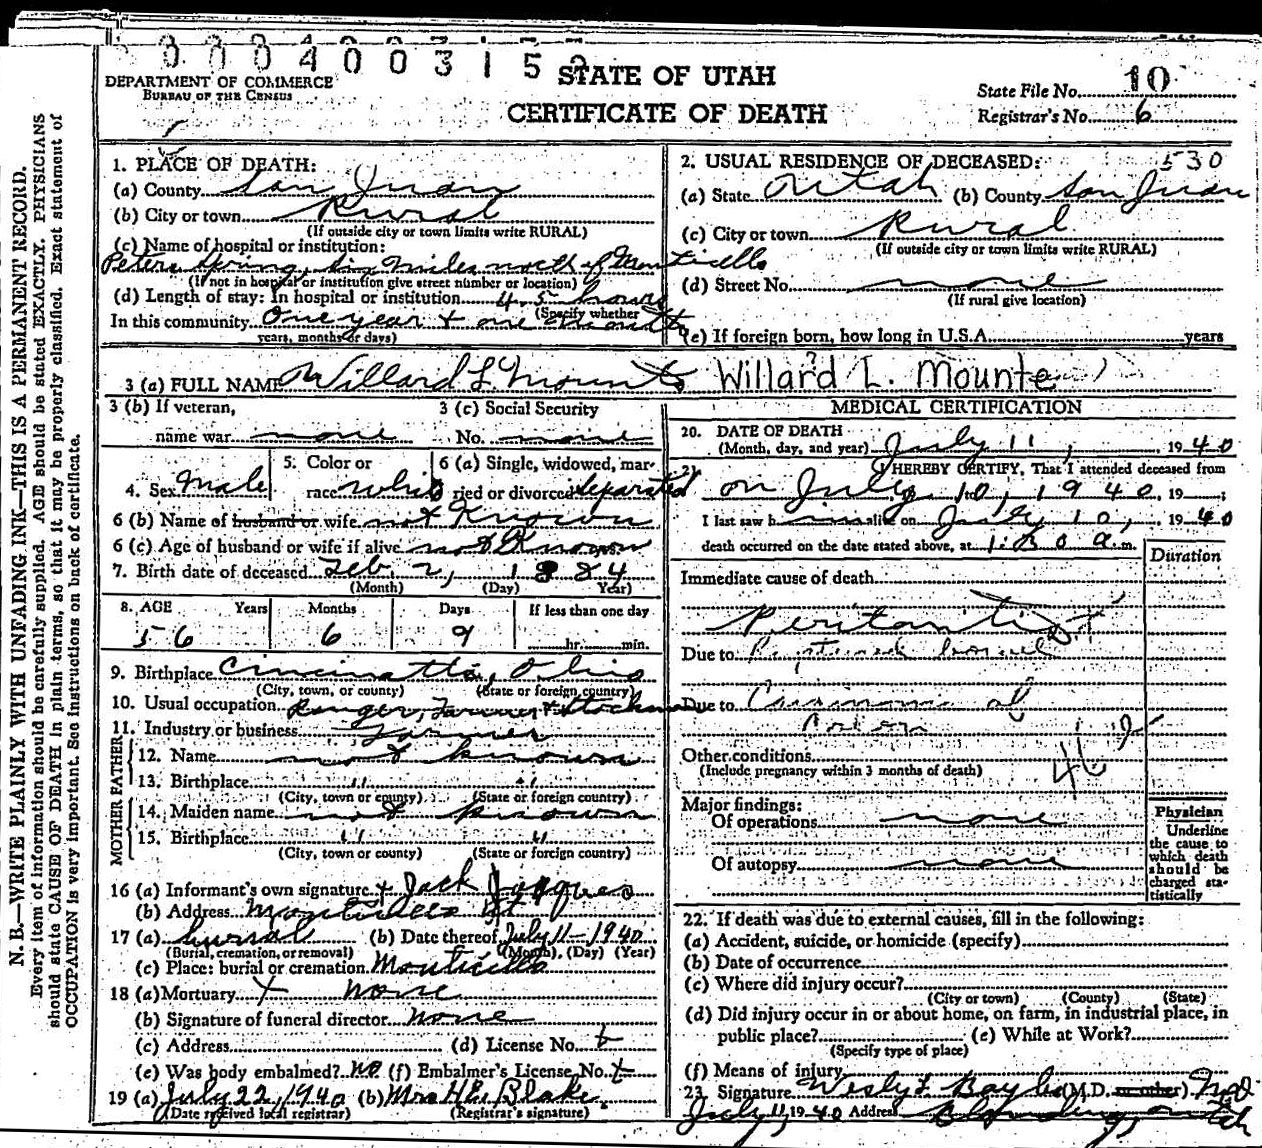 0 0 0 4 0 0 3 1 5
DEPARTMENT OF COMMERCE
BUREAU OF THE CENSUS
STATE OF UTAH
CERTIFICATE OF DEATH
State File No. 10
Registrar's No. 6
N. B.—WRITE PLAINLY WITH UNFADING INK—THIS IS A PERMANENT RECORD.
Every item of information should be carefully supplied. AGE should be stated EXACTLY. PHYSICIANS
should state CAUSE OF DEATH in plain terms, so that it may be properly classified. Exact statement of
OCCUPATION is very important. See instructions on back of certificate.
1. PLACE OF DEATH:
(a) County San Juan
(b) City or town Rural
(If outside city or town limits write RURAL)
(c) Name of hospital or institution:
Peters Spring, six miles north of Monticello
(If not in hospital or institution give street number or location)
(d) Length of stay: In hospital or institution 4.5 hours
(Specify whether
In this community One year + one month
years, months or days)
2. USUAL RESIDENCE OF DECEASED: 530
(a) State Utah (b) County San Juan
(c) City or town Rural
(If outside city or town limits write RURAL)
(d) Street No. none
(If rural give location)
(e) If foreign born, how long in U.S.A. years
3 (a) FULL NAME Willard L. Mounts Willard L. Mounte
3 (b) If veteran,
name war none
3 (c) Social Security
No. none
4. Sex Male
5. Color or
race white
6 (a) Single, widowed, mar-
ried or divorced separated
6 (b) Name of husband or wife not Known
6 (c) Age of husband or wife if alive not Known
7. Birth date of deceased Feb. 2, 1884
(Month) (Day) Year)
8. AGE Years Months Days If less than one day
56 6 9 hr. min.
9. Birthplace Cincinatti, Ohio
(City, town, or county) (State or foreign country)
10. Usual occupation Ranger, Farmer + Stockman
11. Industry or business Farmer
FATHER
12. Name not known
13. Birthplace " "
(City, town or county) (State or foreign country)
MOTHER
14. Maiden name not known
15. Birthplace " "
(City, town or county) (State or foreign country)
16 (a) Informant's own signature + Jack Jaques
(b) Address Monticello Ut
17 (a) burial (b) Date thereof July 11-1940
(Burial, cremation, or removal) (Month) (Day) (Year)
(c) Place: burial or cremation Monticello
18 (a) Mortuary + none
(b) Signature of funeral director none
(c) Address (d) License No. +
(e) Was body embalmed? no (f) Embalmer's License No. +
19 (a) July 22, 1940 (b) Mrs Blake
(Date received local registrar) (Registrar's signature)
MEDICAL CERTIFICATION
20. DATE OF DEATH
(Month, day, and year) July 11, 1940
21. I HEREBY CERTIFY, That I attended deceased from
on July 10, 1940, 19 ;
I last saw h im alive on July 10, 1940
death occurred on the date stated above, at 1:30 a.m.
Duration
Immediate cause of death
Peritonitis
Due to Ruptured bowel
Due to Carcinoma of
Colon
46
Other conditions
(Include pregnancy within 3 months of death)
Major findings:
Of operations none
Of autopsy none
Physician
Underline
the cause to
which death
should be
charged sta-
tistically
22. If death was due to external causes, fill in the following:
(a) Accident, suicide, or homicide (specify)
(b) Date of occurrence
(c) Where did injury occur?
(City or town) (County) (State)
(d) Did injury occur in or about home, on farm, in industrial place, in
public place? (e) While at Work?
(Specify type of place)
(f) Means of injury
23. Signature Wesly Bayles (M.D. or other) MD
July 11, 1940 Address Blanding, Utah